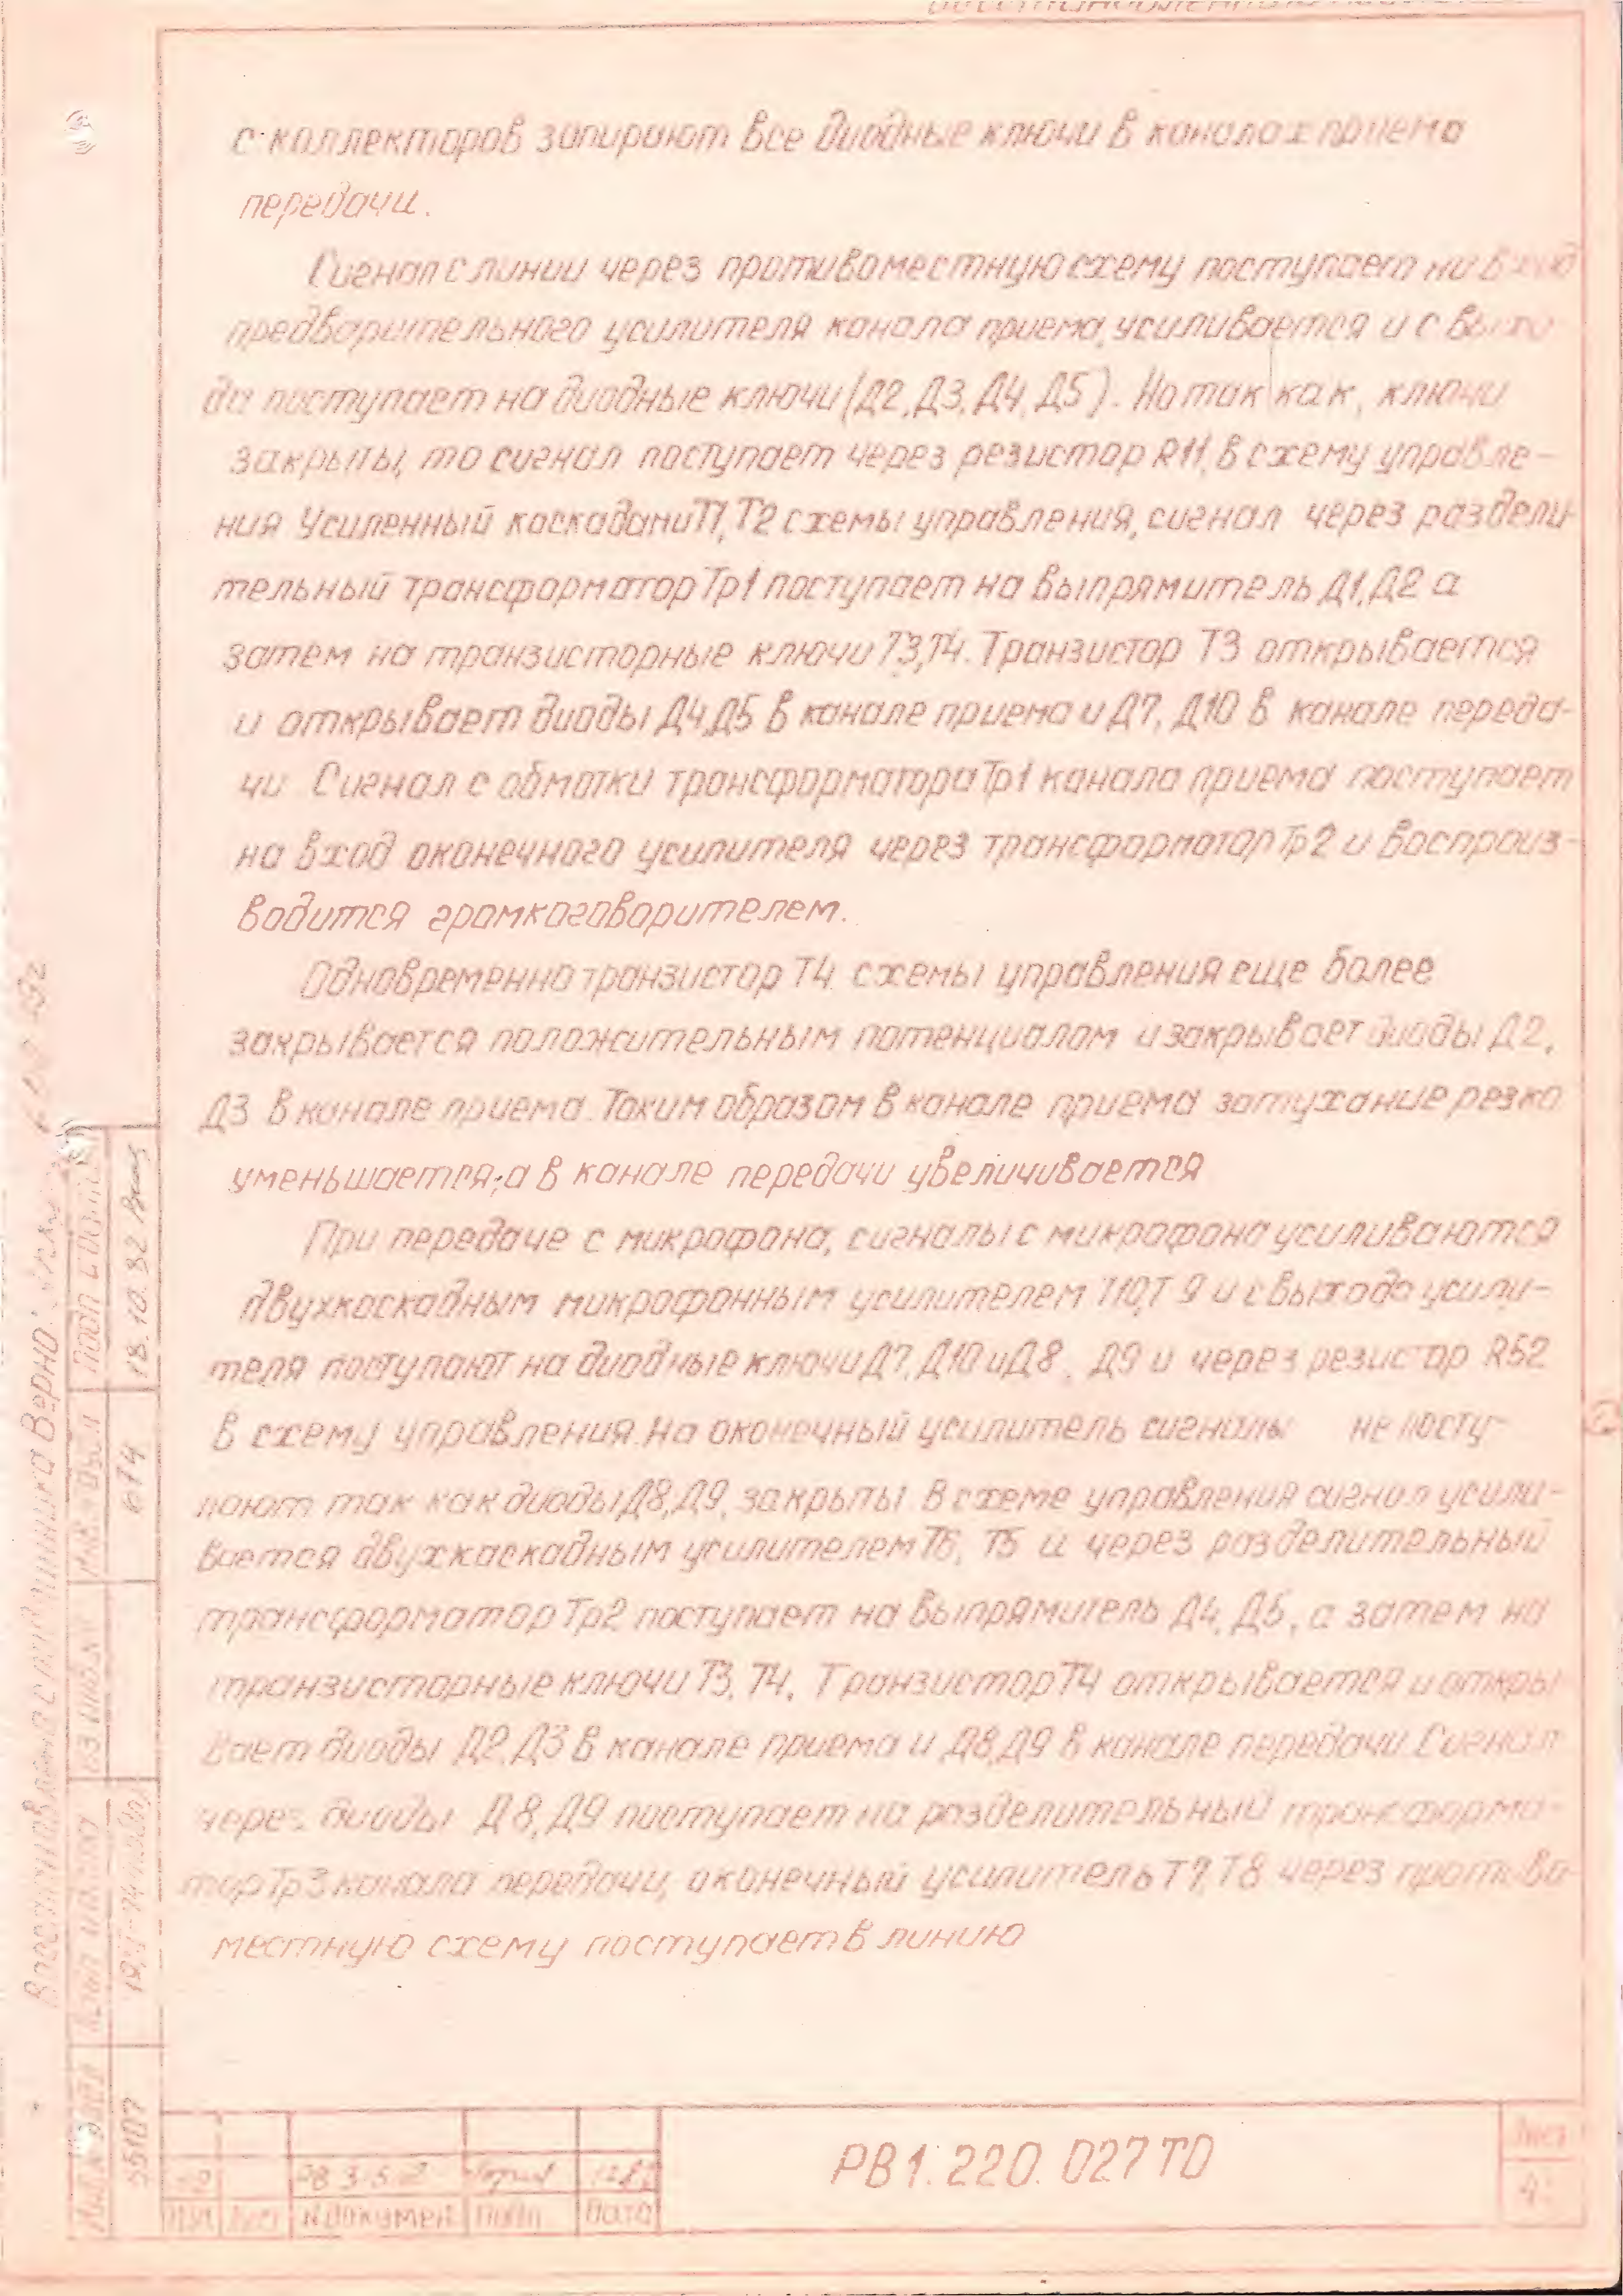 с коллекторов запирают все диодные ключи в каналах приема
передачи.
Сигнал с линии через противоместную схему поступает на вход
предварительного усилителя канала приема, усиливается и с выхо
да поступает на диодные ключи (Д2, Д3, Д4, Д5). Но так как, ключи
закрыты, то сигнал поступает через резистор R11, в схему управле-
ния Усиленный каскадами Т1, Т2 схемы управления, сигнал через раздели-
тельный трансформатор Тр1 поступает на выпрямитель Д1, Д2 а
затем на транзисторные ключи Т3, Т4. Транзистор Т3 открывается
и открывает диоды Д4, Д5 в канале приема и Д7, Д10 в канале переда-
чи. Сигнал с обмотки трансформатора Тр1 канала приема поступает
на вход оконечного усилителя через трансформатор Тр2 и воспроиз-
водится громкоговорителем.
Одновременно транзистор Т4 схемы управления еще более
закрывается положительным потенциалом и закрывает диоды Д2,
Д3 в канале приема. Таким образом в канале приема затухание резко
уменьшается, а в канале передачи увеличивается
При передаче с микрофона, сигналы с микрофона усиливаются
двухкаскадным микрофонным усилителем Т10, Т9 и с выхода усили-
теля поступают на диодные ключи Д7, Д10 и Д8, Д9 и через резистор R52
в схему управления. На оконечный усилитель сигналы не посту-
пают так как диоды Д8, Д9, закрыты. В схеме управления сигнал усили-
вается двухкаскадным усилителем Т6, Т5 и через разделительный
трансформатор Тр2 поступает на выпрямитель Д4, Д5, а затем на
транзисторные ключи Т3, Т4. Транзистор Т4 открывается и откры
вает диоды Д2, Д3 в канале приема и Д8, Д9 в канале передачи. Сигнал
через диоды Д8, Д9 поступает на разделительный трансформа-
тор Тр3 канала передачи, оконечный усилитель Т7, Т8 через противо
местную схему поступает в линию
РВ1.220.027 ТО
Лист
4
Изм Лист № докумен Подп Дата
Инв № подл
55107
Подп и дата
Вз инв №
Инв № дубл
674
Подп и дата
18.10.82
с подлинника Верно: